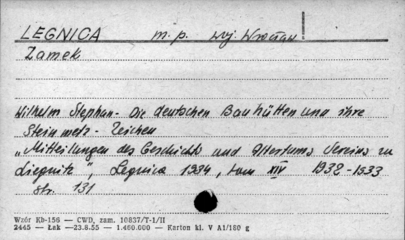 LEGNICA m.p. woj. Wrocław
Zamek
Wilhelm Stephan - Die deutschen Bauhütten und ihre
Steinmetz - Zeichen
„Mitteilungen des Geschichts und Altertums Vereins zu
Liegnitz", Legnica 1934, tom XIV 1932-1933
str. 131
Wzór Kb-156 — CWD, zam. 10837/T-1/II
2445 — Łak — 23.8.55 — 1.460.000 — Karton kl. V A1/180 g